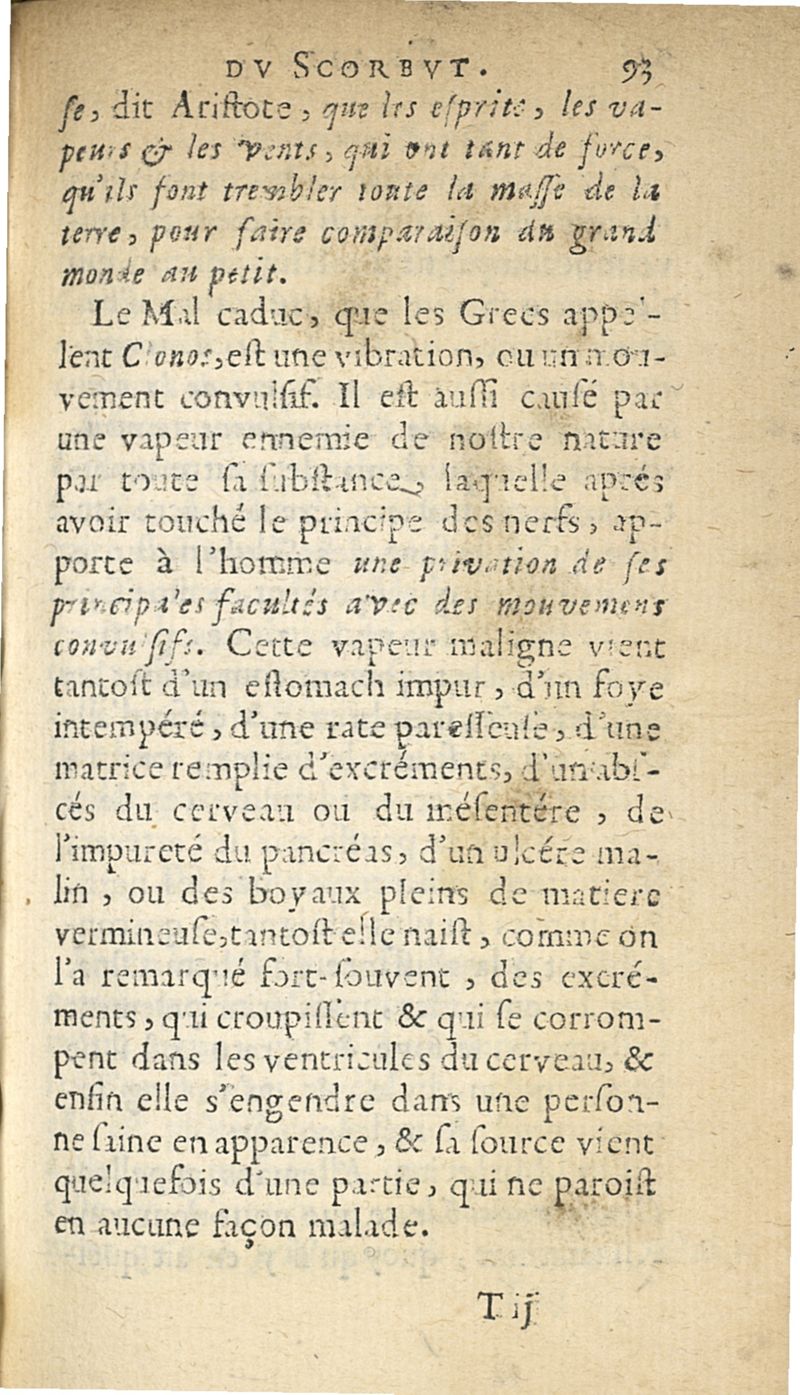 DV SCORBVT. 93
ſe, dit Ariſtote, que les eſprits, les va-
peurs & les vents, qui ont tant de force,
qu'ils font trembler toute la maſſe de la
terre, pour faire comparaiſon du grand
monde au petit.
Le Mal caduc, que les Grecs appel-
lent Clonos, eſt une vibration, ou un mou-
vement convulſif. Il eſt auſſi cauſé par
une vapeur ennemie de noſtre nature
par toute ſa ſubſtance, laquelle aprés
avoir touché le principe des nerfs, ap-
porte à l'homme une privation de ſes
principales facultés avec des mouvemens
convulſifs. Cette vapeur maligne vient
tantoſt d'un eſtomach impur, d'un foye
intempéré, d'une rate pareſſeuſe, d'une
matrice remplie d'excréments, d'un abſ-
cés du cerveau ou du méſentére, de
l'impureté du pancréas, d'un ulcére ma-
lin, ou des boyaux pleins de matiere
vermineuſe, tantoſt elle naiſt, comme on
l'a remarqué fort-ſouvent, des excré-
ments, qui croupiſſent & qui ſe corrom-
pent dans les ventricules du cerveau, &
enfin elle s'engendre dans une perſon-
ne ſaine en apparence, & ſa ſource vient
quelquefois d'une partie, qui ne paroiſt
en aucune façon malade.
T ij